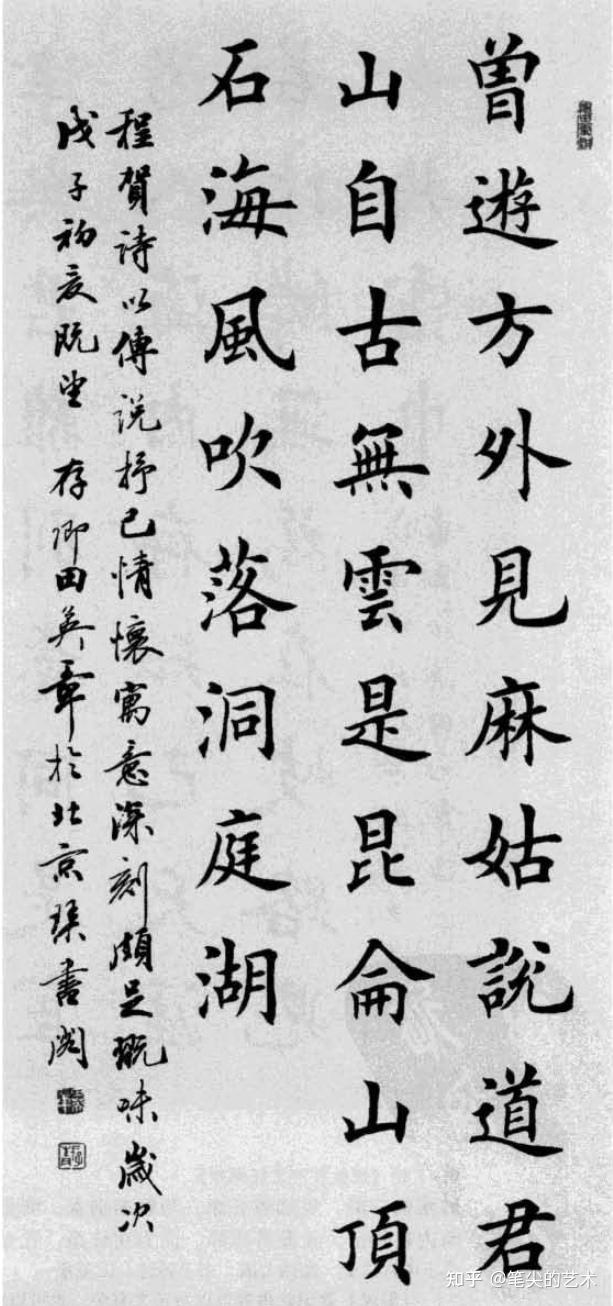 曾遊方外見麻姑說道君
山自古無雲是昆侖山頂
石海風吹落洞庭湖
程賀詩以傳說抒己情懷寓意深刻頗足玩味歲次
戊子初夏既望 存卿田英章於北京琹書閣
知乎 @笔尖的艺术